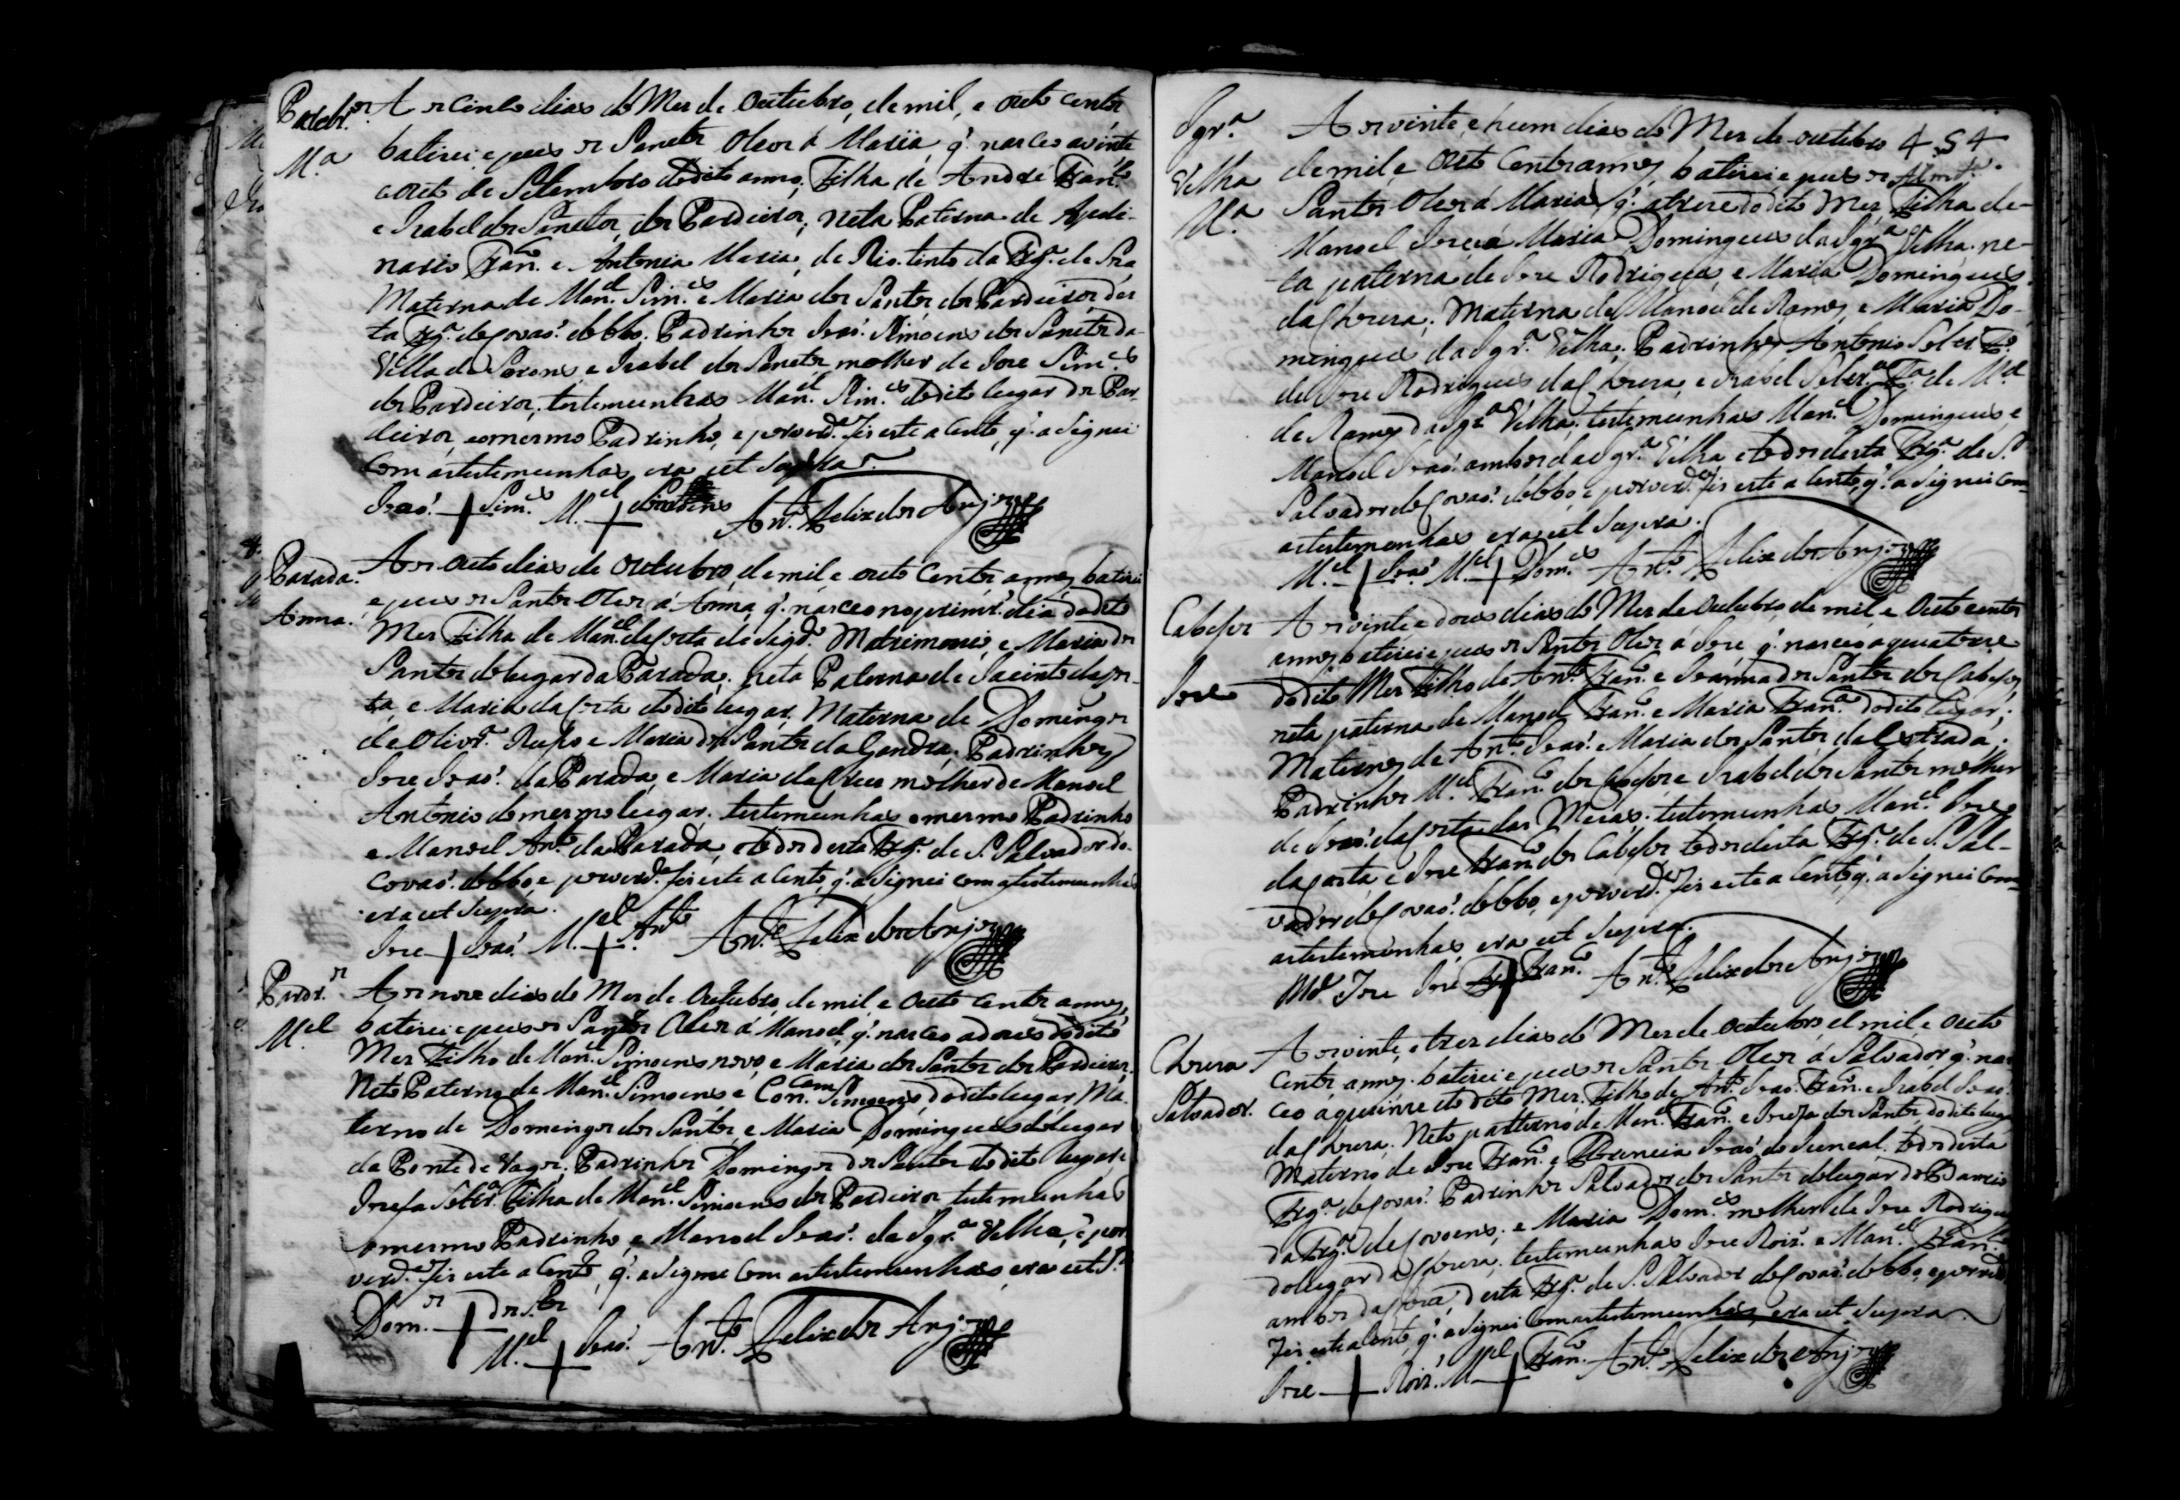 Pardr.os
M.a
Aos cinco dias do Mes de Outubro, de mil, e outo centos
batizei e pus os Sanctos Oleos á Maria, q' nasceo a vinte
e outo de Setembro do dito anno, Filha de André Fran.co
e Isabel dos Sanctos, dos Pardeiros; neta Paterna de Apoli-
nario Fran.co e Antonia Maria, de Rio tinto da Frg.a de Sza
Materna de Man.el Sim.es e Maria dos Santos, dos Pardeiros, des-
ta Frg.a de Covaõ do lobo. Padrinhos Joaõ Simoens dos Sanctos da
Villa de Sorens e Isabel dos Sanctos molher de Jose Sim.es
dos Pardeiros, testemunhas Man.el Sim.es do dito lugar dos Par-
deiros, e o mesmo Padrinho, e por verd.e fis este acento, q' asignei
com as testemunhas era ut Supra.
Joaõ + Sim.es M.el + Simoens Ant.o Felix dos Anjos
Parada.
Anna.
Aos outo dias de Outubro, de mil e outo centos annos, batizei
e pus os Santos Oleos á Anna, q' nasceo no primr.o dia do dito
Mes Filha de Man.el da Costa de Segd.o Matrimonio, e Maria dos
Santos do lugar da Parada; neta Paterna de Jacinto da Cos-
ta, e Maria da Costa do dito lugar. Materna de Domingos
de Olivr.a Rupo e Maria dos Santos da Gandra; Padrinhos
Jose Joaõ da Parada, e Maria da Cruz molher de Manoel
Antonio do mesmo lugar. testemunhas o mesmo Padrinho
e Manoel Ant.o da Parada, todos desta Frg.a de S. Salvador do
Covaõ do lobo, e por verd.e fis este acento, q' asignei com as testemunhas
era ut Supra.
Jose + Joaõ M.el + Ant.o Ant.o Felix dos Anjos
Pardr.os
M.el
Aos nove dias do Mes de Outubro, de mil e outo centos annos,
batizei e pus os Santos Oleos á Manoel, q' nasceo a dous do dito
Mes Filho de Man.el Simoens novo, e Maria dos Santos dos Pardeiros,
Neto Paterno de Man.el Simoens e Simoens do dito lugar, Ma-
terno de Domingos dos Santos, e Maria Domingues do lugar
da Ponte de Vagos; Padrinhos Domingos dos Santos do dito lugar e
Josefa Solt.ra Filha de Man.el Simoens dos Pardeiros testemunhas
o mesmo Padrinho, e Manoel Joaõ da Igr.a Velha, e por
verd.e fis este acento, q' asignei com as testemunhas era ut S.a
Dom.os + dos S.tos
M.el + Joaõ Ant.o Felix dos Anjos
454
Igr.a
Velha
M.a
Aos vinte, e hum dias do Mes de Outubro
de mil, e outo centos annos, batizei e pus os
Santos Oleos á Maria, q' a treze do dito Mes, Filha de
Manoel Maria Domingues da Igr.a Velha, ne-
ta paterna de Jose Rodrigues, e Maria Domingues
da Chousa; Materna de Manoel de Ramos, e Maria Do-
mingues da Igr.a Velha; Padrinhos Antonio Soltr.o F.o
de Jose Rodrigues da Chousa, e Isabel Solter.a F.a de M.el
de Ramos da Igr.a Velha, testemunhas Man.el Domingues, e
Manoel Joaõ ambos da Igr.a Velha e todos desta Frg.a de S.
Salvador do Covaõ do lobo, e por verd.e fis este acento, q' asignei com
as testemunhas era ut Supra.
M.el + Joaõ M.el + Dom.es Ant.o Felix dos Anjos
Cabeços
Jose
Aos vinte e dous dias do Mes de Outubro, de mil e outo centos
annos batizei e pus os Santos Oleos á Jose, q' nasceo a quatorze
do dito Mes Filho de Ant.o Fran.co e Joanna dos Santos dos Cabeços
neto paterno de Manoel Fran.co e Maria Fran.ca do dito lugar;
Materno de Ant.o Joaõ e Maria dos Santos, da Estrada;
Padrinhos M.el Fran.co dos Cabeços e Isabel dos Santos molher
de Joaõ da Costa das Meias. testemunhas Man.el Jose
da Costa e Jose Fran.co dos Cabeços todos desta Frg.a de S. Sal-
vador do Covaõ do lobo, e por verd.e fis este acento, q' asignei com
as testemunhas, era ut Supra.
M.el Jose Jose + Fran.co Ant.o Felix dos Anjos
Chousa
Salvador.
Aos vinte, e tres dias do Mes de Outubro, de mil e outo
centos annos. batizei e pus os Santos, Oleos á Salvador q' nas-
ceo a quinze do dito Mes. Filho de Ant.o Joaõ Fran.co e Isabel Joaõ
da Chousa; Neto paterno de Man.el Fran.co e Josefa dos Santos do dito lugar
Materno de Jose Fran.co e Florencia Joaõ do Juncal. todos desta
Frg.a de Covaõ Padrinhos Salvador dos Santos do lugar do
da Frg.a de Covoens; e Maria Dom.es molher de Jose Rodrigues
do lugar da Chousa; testemunhas Jose Roiz. e Man.el Fran.co
ambos da Chousa, desta Frg.a de S. Salvador do Covaõ do lobo, e por verd.e
fis este acento, q' asignei com as testemunhas, era ut Supra.
Jose + Roiz. M.el + Fran.co Ant.o Felix dos Anjos